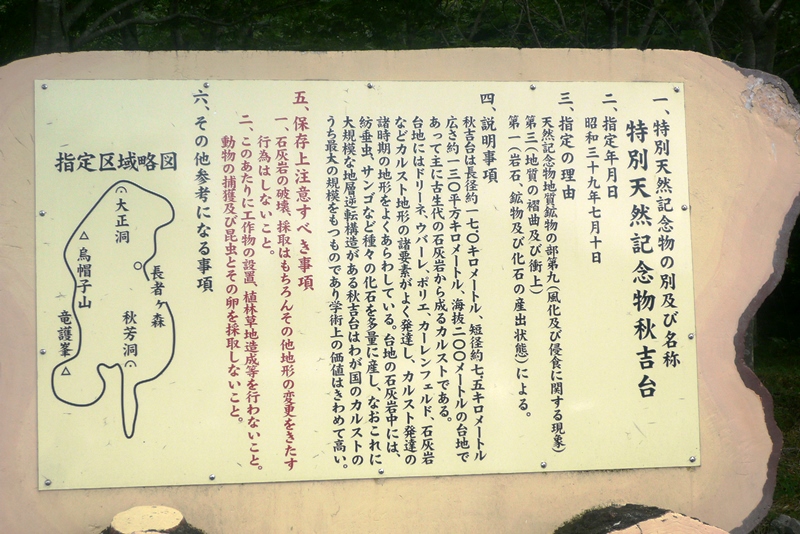 一、特別天然記念物の別及び名称
特別天然記念物秋吉台
二、指定年月日
昭和三十九年七月十日
三、指定の理由
天然記念物地質鉱物の部第九(風化及び侵食に関する現象)
第三(地質の褶曲及び衝上)
第一(岩石、鉱物及び化石の産出状態)による。
四、説明事項
秋吉台は長径約一七〇キロメートル、短径約七・五キロメートル
広さ約一三〇平方キロメートル、海抜二〇〇メートルの台地で
あって主に古生代の石灰岩から成るカルストである。
台地にはドリーネ、ウバーレ、ポリエ、カーレンフェルド、石灰岩
などカルスト地形の諸要素がよく発達し、カルスト発達の
諸時期の地形をよくあらわしている。台地の石灰岩中には、
紡垂虫、サンゴなど種々の化石を多量に産し、なおこれに
大規模な地層逆転構造がある秋吉台はわが国のカルストの
うち最大の規模をもつものであり学術上の価値はきわめて高い。
五、保存上注意すべき事項
一、石灰岩の破壊、採取はもちろんその他地形の変更をきたす
行為はしないこと。
二、このあたりに工作物の設置、植林草地造成等を行わないこと。
動物の捕獲及び昆虫とその卵を採取しないこと。
六、その他参考になる事項
指定区域略図
大正洞
烏帽子山
長者ヶ森
秋芳洞
竜護峯